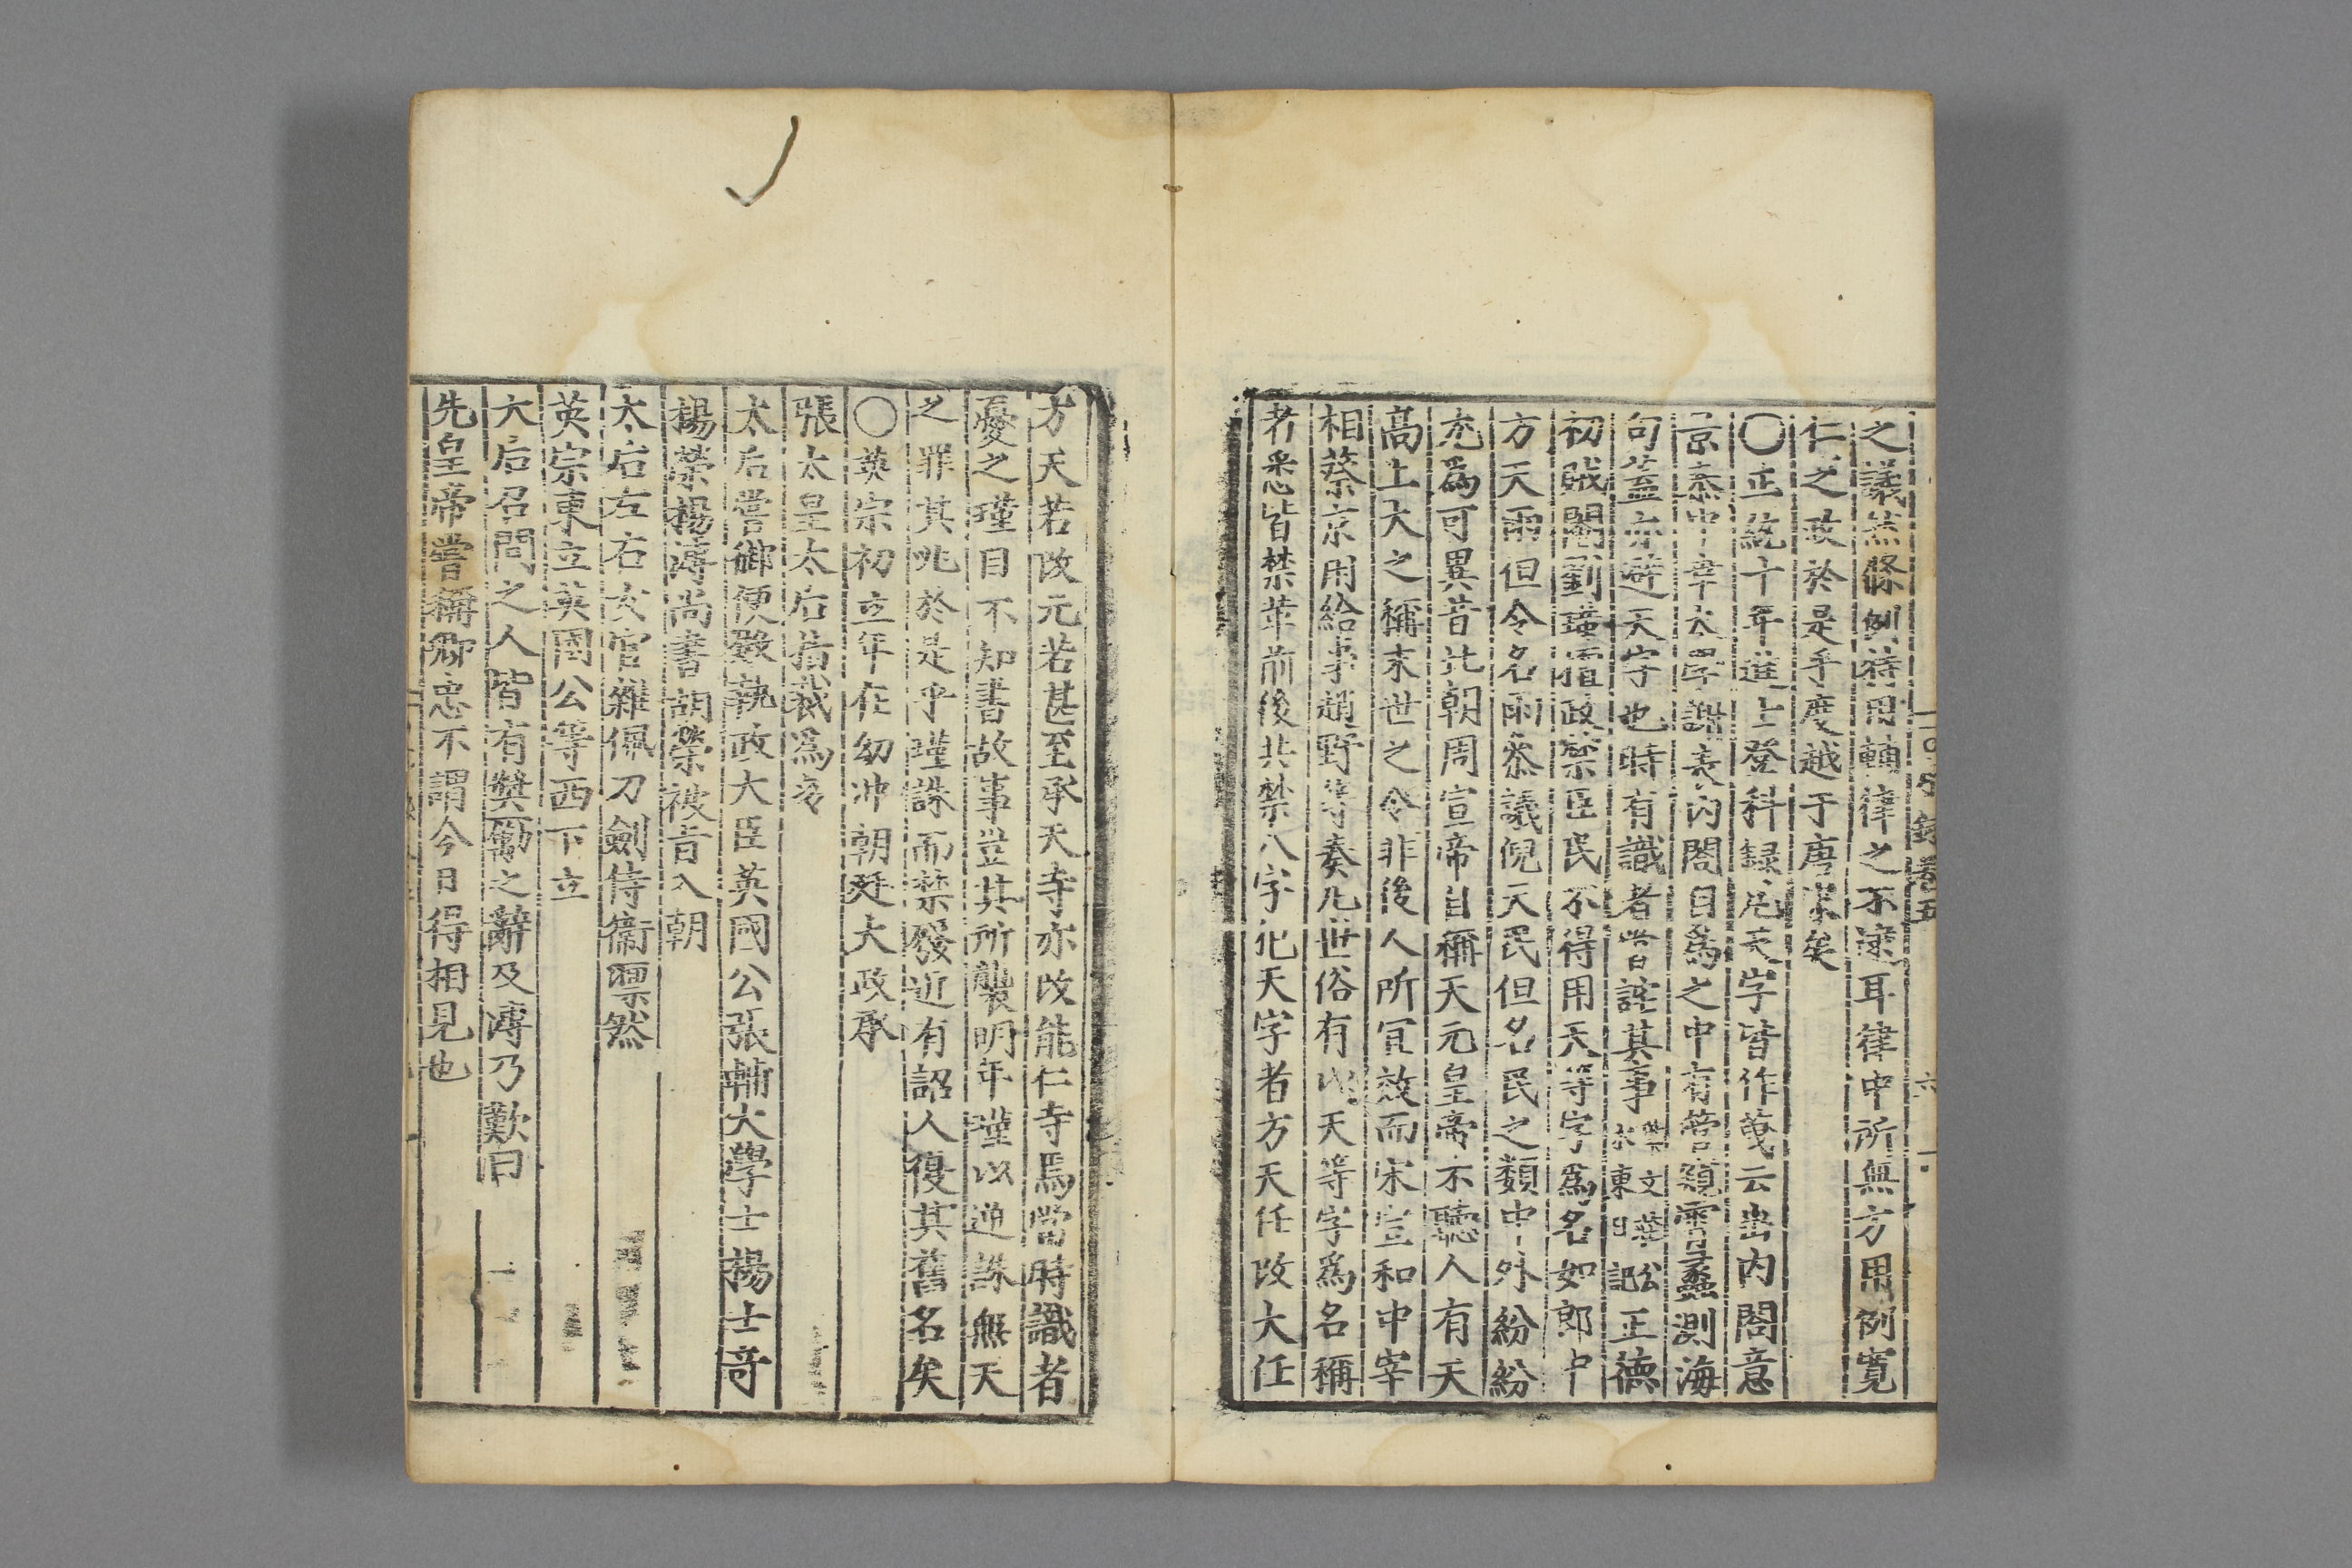 之議然條例特用輔律之不逮耳律中所無方用例寬
仁之政於是乎度越于唐宋矣
〇正統十年進士登科錄凡天字皆作䒶云出內閣意
景泰中章太學謝表內閣目為之中有管窺霄蠡測海
句盖亦避天字也時有識者嘗詫其事葉文莊公水東日記正德
初賊閹劉瑾竊政禁臣民不得用天等字為名如郎中
方天雨但令名雨叅議倪天民但名民之類中外紛紛
充為可異昔北朝周宣帝自稱天元皇帝不聽人有天
高上大之稱末世之令非後人所宜效而宋宣和中宰
相蔡京用給事趙野等奏凡世俗有以天等字為名稱
者悉皆禁革前後共禁八字犯天字者方天任改大任
方天若改元若甚至承天寺亦改能仁寺焉當時識者
憂之瑾目不知書故事豈其所襲明年瑾以逆誅無天
之罪其兆於是乎瑾誅而禁廢近有詔人復其舊名矣
〇英宗初立年在幼冲朝廷大政承
張太皇太后指裁為多
太后嘗御便殿執政大臣英國公張輔大學士楊士奇
楊榮楊溥尚書胡濙被旨入朝
太后左右女官雜佩刀劍侍衛凜然
英宗東立英國公等西下立
太后召問之人皆有奬勵之辭及溥乃歎曰
先皇帝嘗稱卿忠不謂今日得相見也